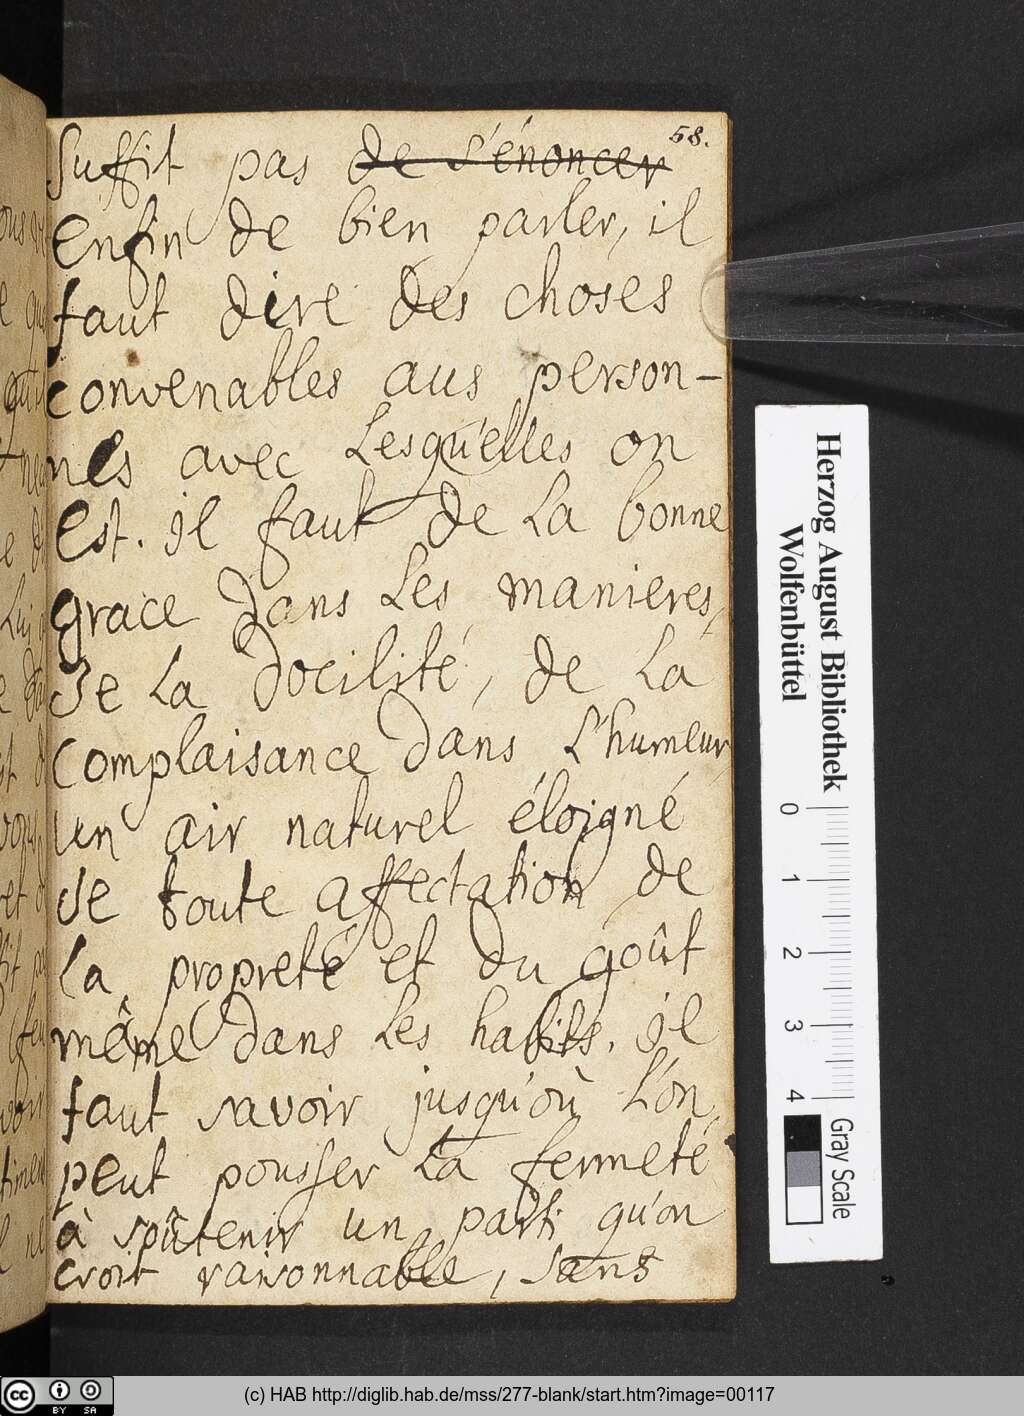 58.
suffit pas de s'énoncer
enfin de bien parler, il
faut dire des choses
convenables aus person-
nes avec Lesquelles on
est. il faut de La bonne
grace dans Les manieres,
de La docilité, de La
complaisance dans L'humeur,
un air naturel éloigné
de toute affectation de
La propreté et du goût
mâme dans Les habits. il
faut savoir jusqu'où L'on
peut pousser La fermeté
à soûtenir un parti qu'on
croit raisonnable, sans
Herzog August Bibliothek
Wolfenbüttel
0 1 2 3 4
Gray Scale
cc BY SA
(c) HAB http://diglib.hab.de/mss/277-blank/start.htm?image=00117